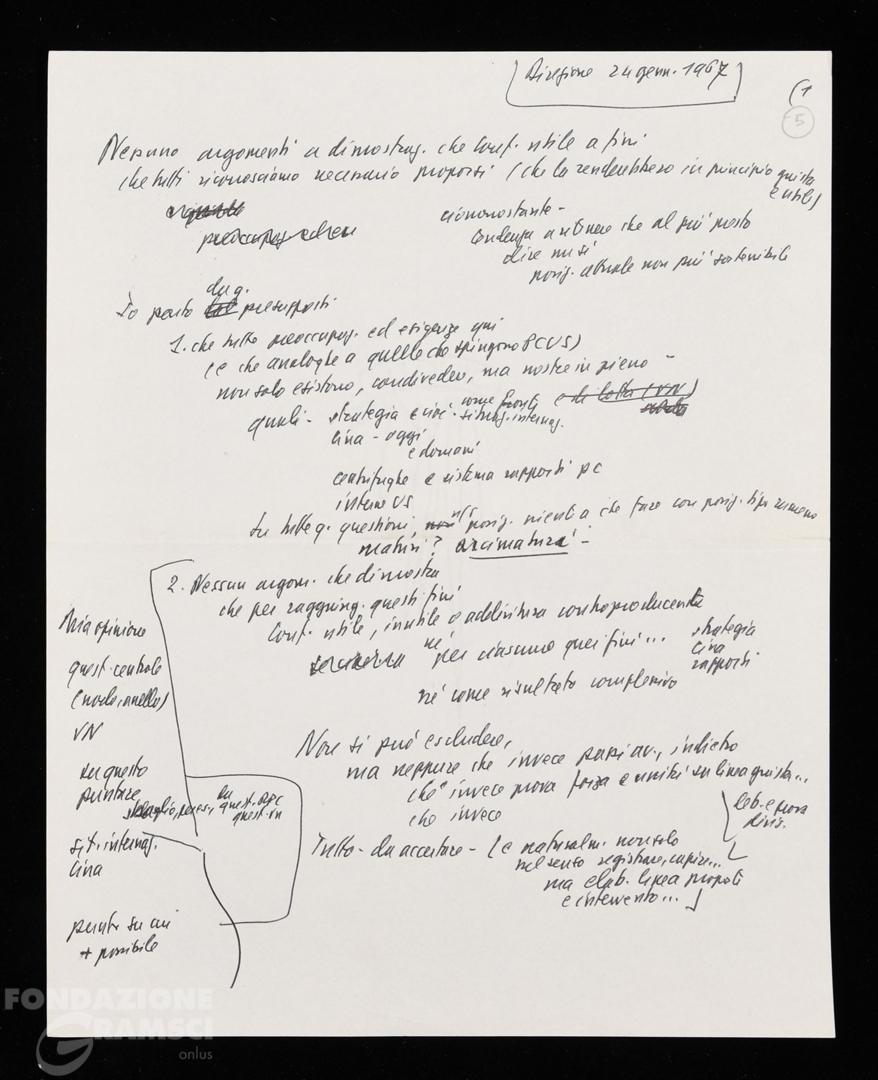 Direzione 24 genn. 1967
(1
5
Nessuno argomenti a dimostraz. che Conf. utile a fini
che tutti riconosciamo necessario proporsi (che la renderebbero in principio giusta
e utile)
preoccupaz. ed es
ciononostante -
tendenza a ritenere che al più presto
dire no si
posiz. attuale non più sostenibile
da q.
Io parto presupposti
1. che tutte preoccupaz. ed esigenze qui
(e che analoghe a quelle che spingono PCUS)
non solo esistono, condividere, ma nostre in pieno -
quali - strategia e cioè come fronti e di lotta (VN)
situaz. internaz.
Cina - oggi
e domani
centrifughe e sistema rapporti PC
interne US
Su tutte q. questioni, ns posiz. niente a che fare con posiz. tipo rumeno
maturi? arcimatura! -
2. Nessun argom. che dimostra
che per raggiung. questi fini
Conf. utile, inutile o addirittura controproducente
né per ciascuno quei fini... strategia
Cina
rapporti
né come risultato complessivo
Mia opinione
quest. centrale
(nodo, anello)
VN
su questo
puntare
quest. PC
quest. VN
sit. internaz.
Cina
punti su cui
+ possibile
Non si può escludere,
ma neppure che invece passi av., indietro
che invece prova forza e unità su linea giusta...
che invece
Tutto - da accertare - (e naturalm. non solo
nel senso registrare, capire...
ma elab. linea proposti
e intervento...)